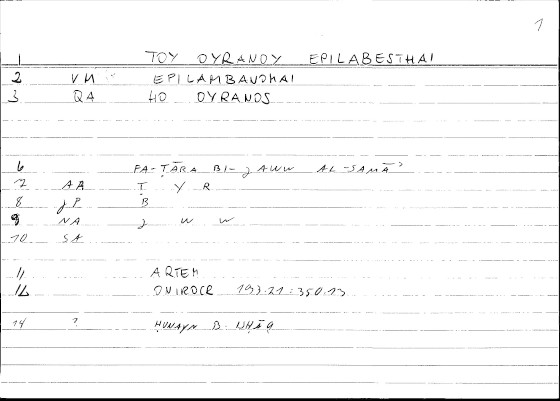 1
1 TOY OYRANOY EPILABESTHAI
2 VM EPILAMBANOMAI
3 QA HO OYRANOS
6 FA-ṬĀRA BI-ǧAWW AL-SAMĀʾ
7 AA Ṭ Y R
8 ǧP B
9 NA ǧ W W
10 SA
11 ARTEM
12 ONIROCR 193.21 = 350.13
14 ? ḤUNAYN B.